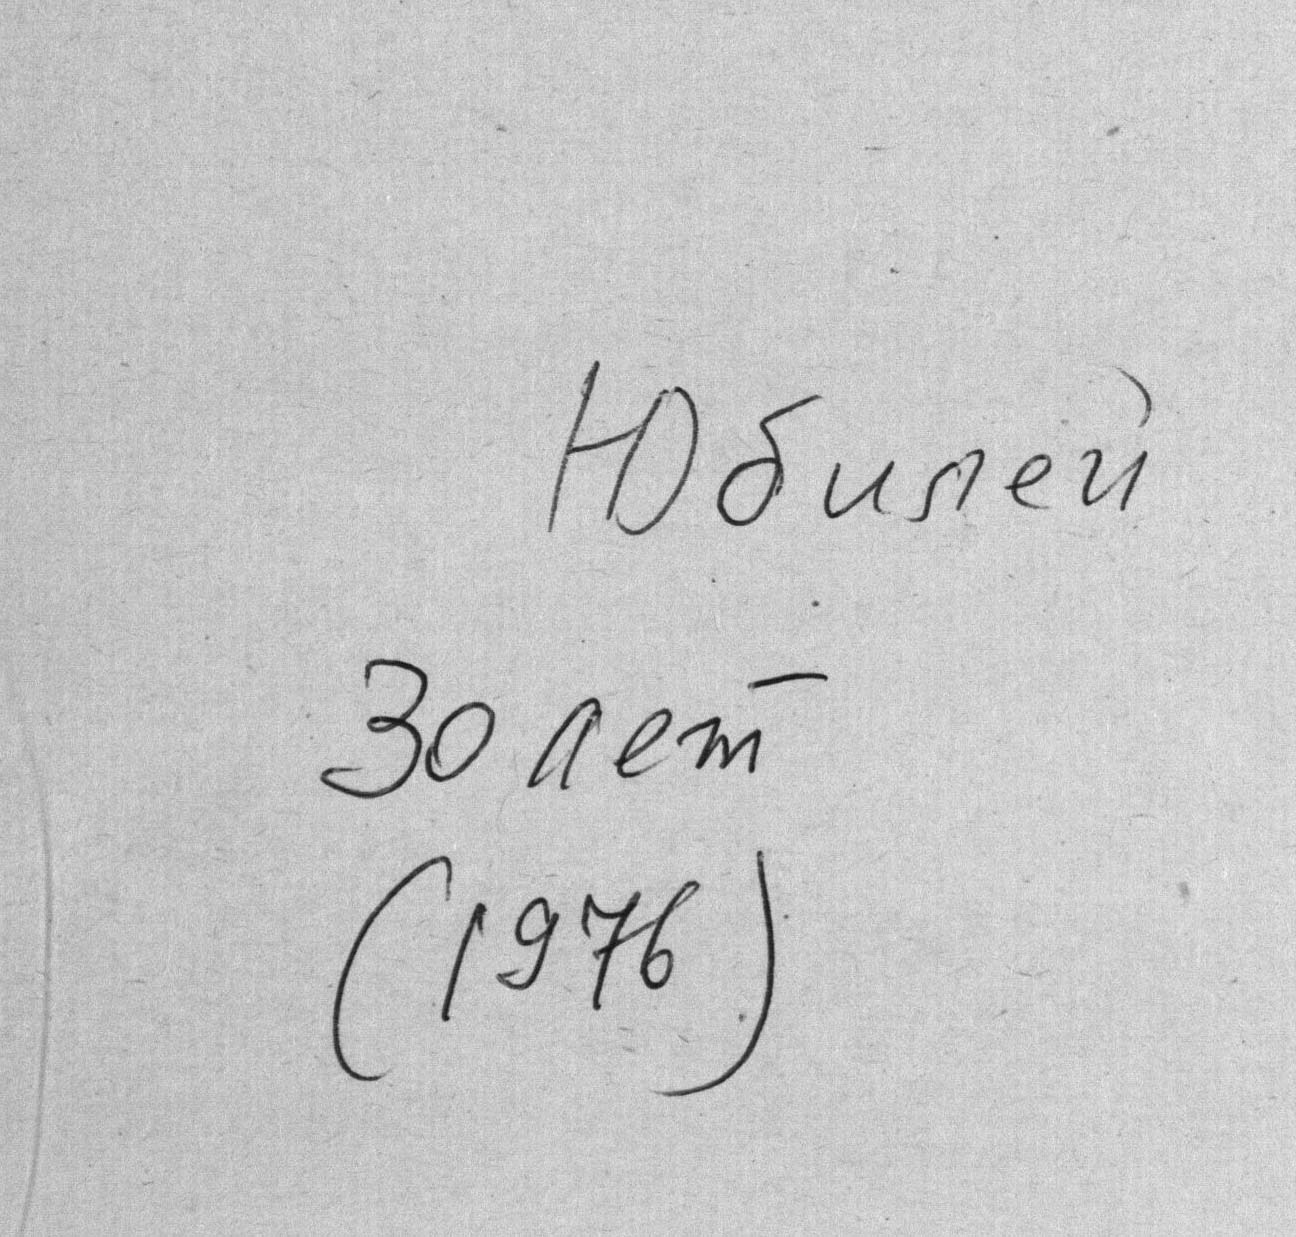 Юбилей
30 лет
(1976)